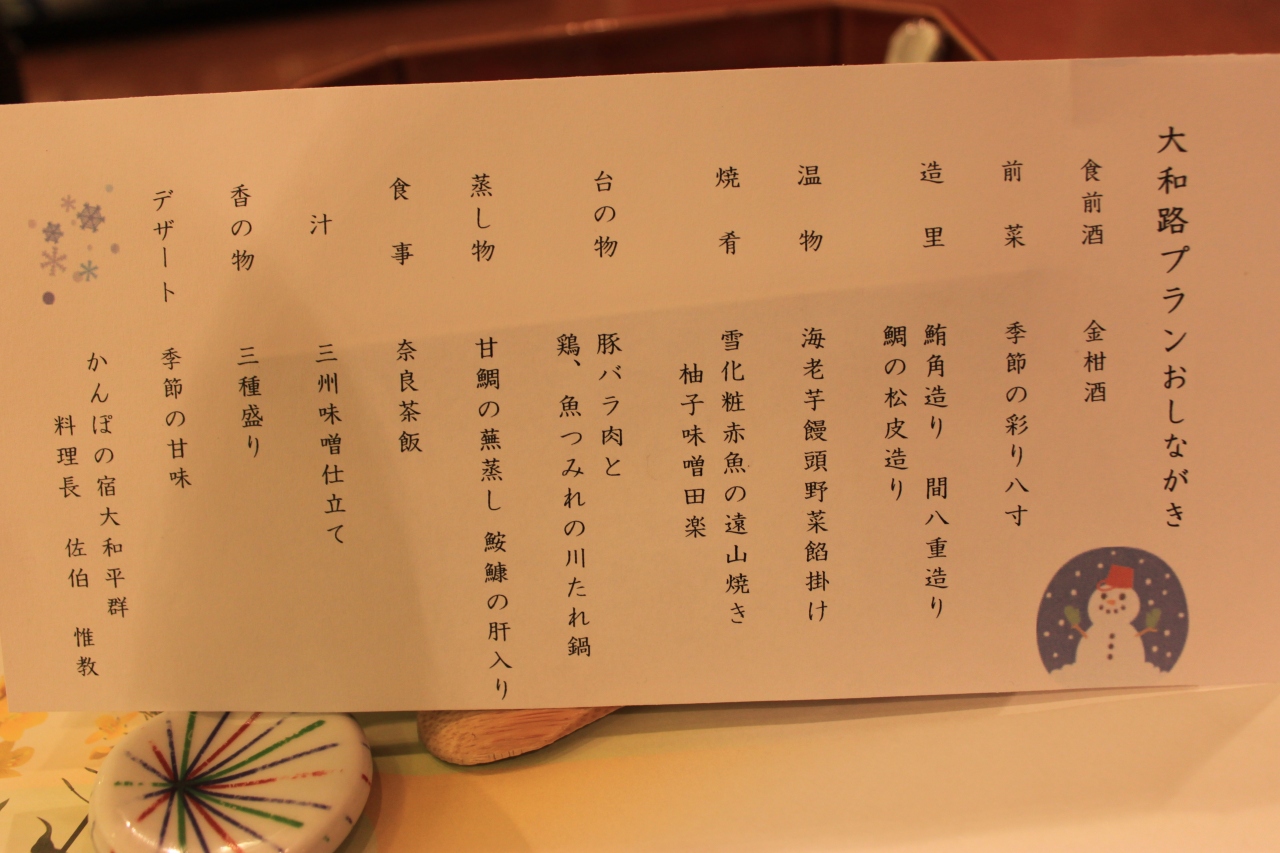 大和路プランおしながき
食前酒 金柑酒
前菜 季節の彩り八寸
造里 鮪角造り 間八重造り
鯛の松皮造り
温物 海老芋饅頭野菜餡掛け
焼肴 雪化粧赤魚の遠山焼き
柚子味噌田楽
台の物 豚バラ肉と
鶏、魚つみれの川たれ鍋
蒸し物 甘鯛の蕪蒸し 鮟鱇の肝入り
食事 奈良茶飯
汁 三州味噌仕立て
香の物 三種盛り
デザート 季節の甘味
かんぽの宿大和平群
料理長 佐伯 惟教